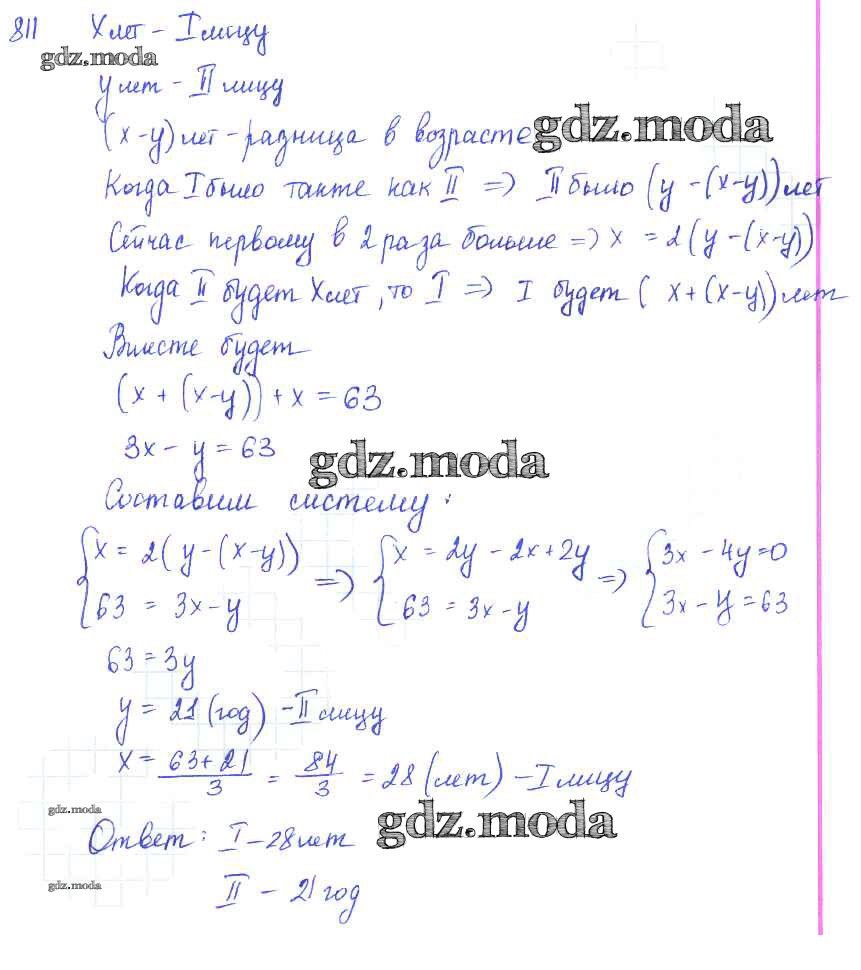 811 X лет - I лицу
gdz.moda
у лет - II лицу
(x-y) лет - разница в возрасте gdz.moda
Когда I было также как II => II было (y-(x-y)) лет
Сейчас первому в 2 раза больше => x = 2(y-(x-y))
Когда II будет X лет, то I => I будет (x+(x-y)) лет
Вместе будет
(x+(x-y))+x=63
3x-y=63
gdz.moda
Составим систему:
{x = 2(y-(x-y)) => {x = 2y-2x+2y => {3x-4y=0
{63 = 3x-y {63 = 3x-y {3x-y=63
63=3y
y = 21 (год) - II лицу
x = (63+21)/3 = 84/3 = 28 (лет) - I лицу
gdz.moda
Ответ: I - 28 лет gdz.moda
gdz.moda
II - 21 год